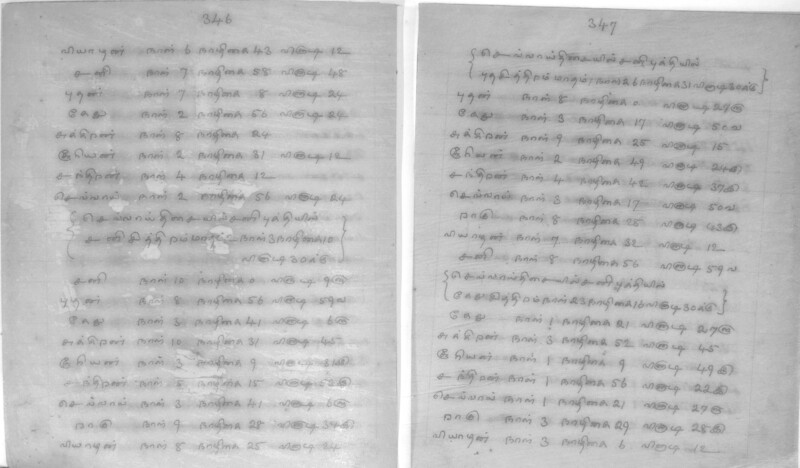 346
வியாழன் நாள் 6 நாழிகை 43 விகாடி 12
சனி நாள் 7 நாழிகை 58 விகாடி 48
புதன் நாள் 7 நாழிகை 8 விகாடி 24
கேது நாள் 2 நாழிகை 56 விகாடி 24
சுக்கிறன் நாள் 8 நாழிகை 24
சூரியன் நாள் 2 நாழிகை 31 விகாடி 12
சந்திறன் நாள் 4 நாழிகை 12
செவ்வாய் நாள் 2 நாழிகை 56 விகாடி 24
செவ்வாய்திசையில் சனிபுத்தியில்
சனி சித்திரம் மாதம் 2 நாள் 3 நாழிகை 10
விகாடி 30க்கு
சனி நாள் 10 நாழிகை விகாடி
புதன் நாள் 8 நாழிகை 56 விகாடி 59
கேது நாள் 3 நாழிகை 41 விகாடி
சுக்கிறன் நாள் 10 நாழிகை 31 விகாடி 45
சூரியன் நாள் 3 நாழிகை 9 விகாடி
சந்திறன் நாள் 5 நாழிகை 15 விகாடி
செவ்வாய் நாள் 3 நாழிகை 41 விகாடி
றாகு நாள் 9 நாழிகை 28 விகாடி
வியாழன் நாள் 8 நாழிகை 25 விகாடி 24
347
செவ்வாய்திசையில் சனிபுத்தியில்
புதசித்திரம் மாதம் 1 நாள் 26 நாழிகை 31 விகாடி 30க்கு
புதன் நாள் 8 நாழிகை விகாடி
கேது நாள் 3 நாழிகை 17 விகாடி
சுக்கிறன் நாள் 9 நாழிகை 25 விகாடி 15
சூரியன் நாள் 2 நாழிகை 49 விகாடி
சந்திறன் நாள் 4 நாழிகை 42 விகாடி
செவ்வாய் நாள் 3 நாழிகை 17 விகாடி
றாகு நாள் 8 நாழிகை 25 விகாடி
வியாழன் நாள் 7 நாழிகை 32 விகாடி 12
சனி நாள் 8 நாழிகை 56 விகாடி 59
செவ்வாய்திசையில் சனிபுத்தியில்
கேதுசித்திரம் நாள் 23 நாழிகை 16 விகாடி 30க்கு
கேது நாள் 1 நாழிகை 21 விகாடி
சுக்கிறன் நாள் 3 நாழிகை 52 விகாடி 45
சூரியன் நாள் 1 நாழிகை 9 விகாடி
சந்திறன் நாள் 1 நாழிகை 56 விகாடி
செவ்வாய் நாள் 1 நாழிகை 21 விகாடி
றாகு நாள் 3 நாழிகை 29 விகாடி
வியாழன் நாள் 3 நாழிகை 6 விகாடி 12